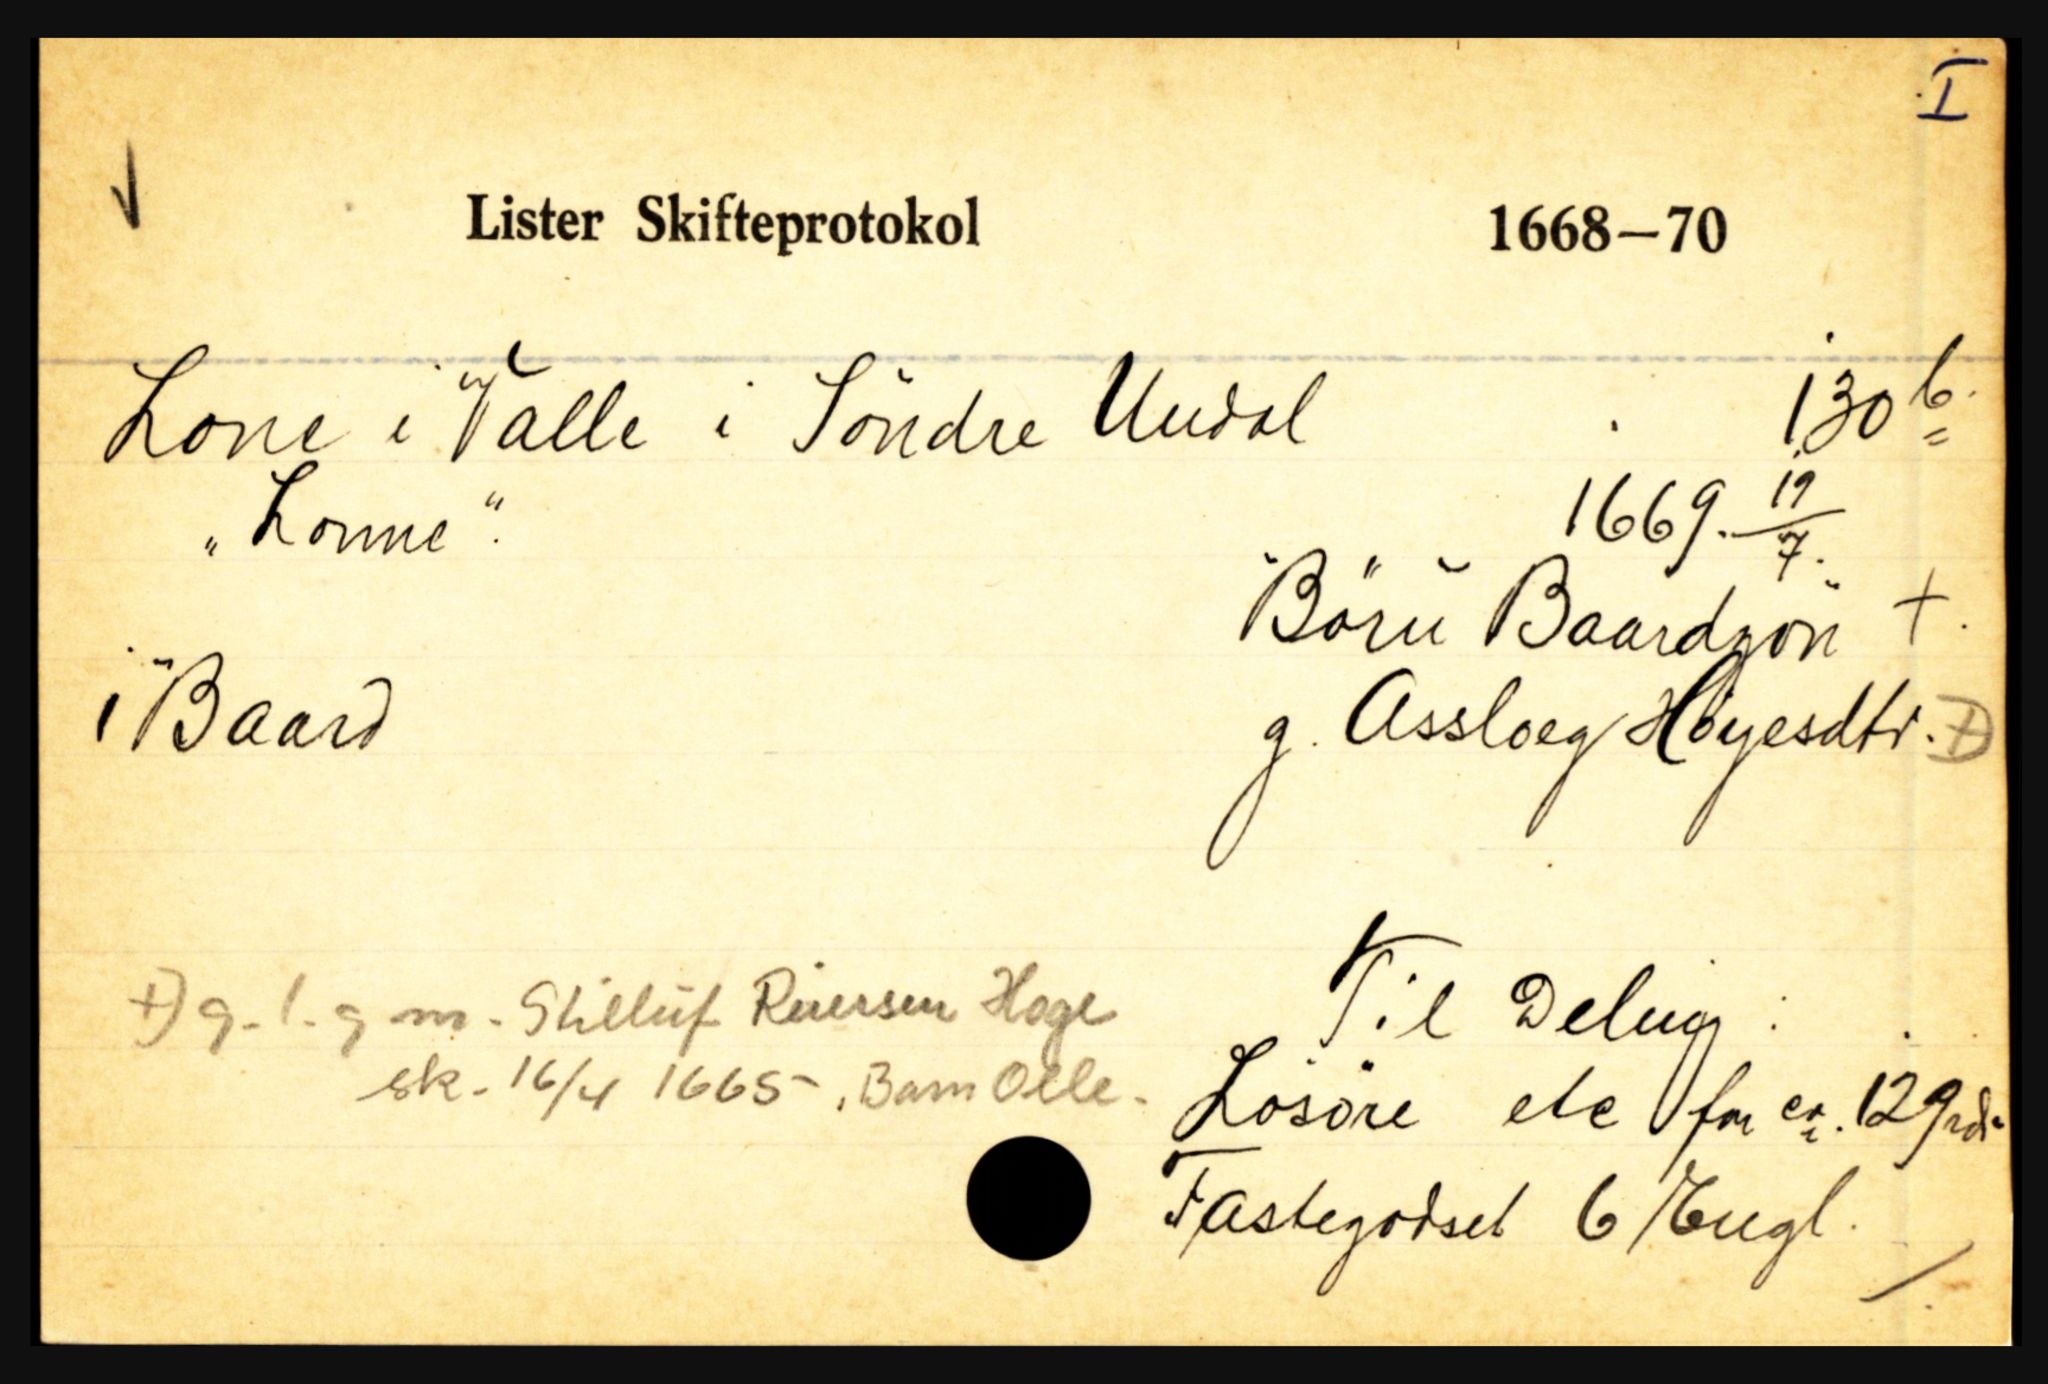 I
Lister Skifteprotokol 1668—70
Lone i Valle i Söndre Undal 130 b.
„Lonne“. 1669. 19/7.
Börü Baardzön +.
1 Baard g. Assloeg Höyesdtr. +)
Til Deling:
+) g. 1. g m. Stilluf Reiersen Hoge
sk. 16/4 1665, Barn Olle.
Lösöre etc for ca. 129 rdr
Fastegodset 6 Engl.